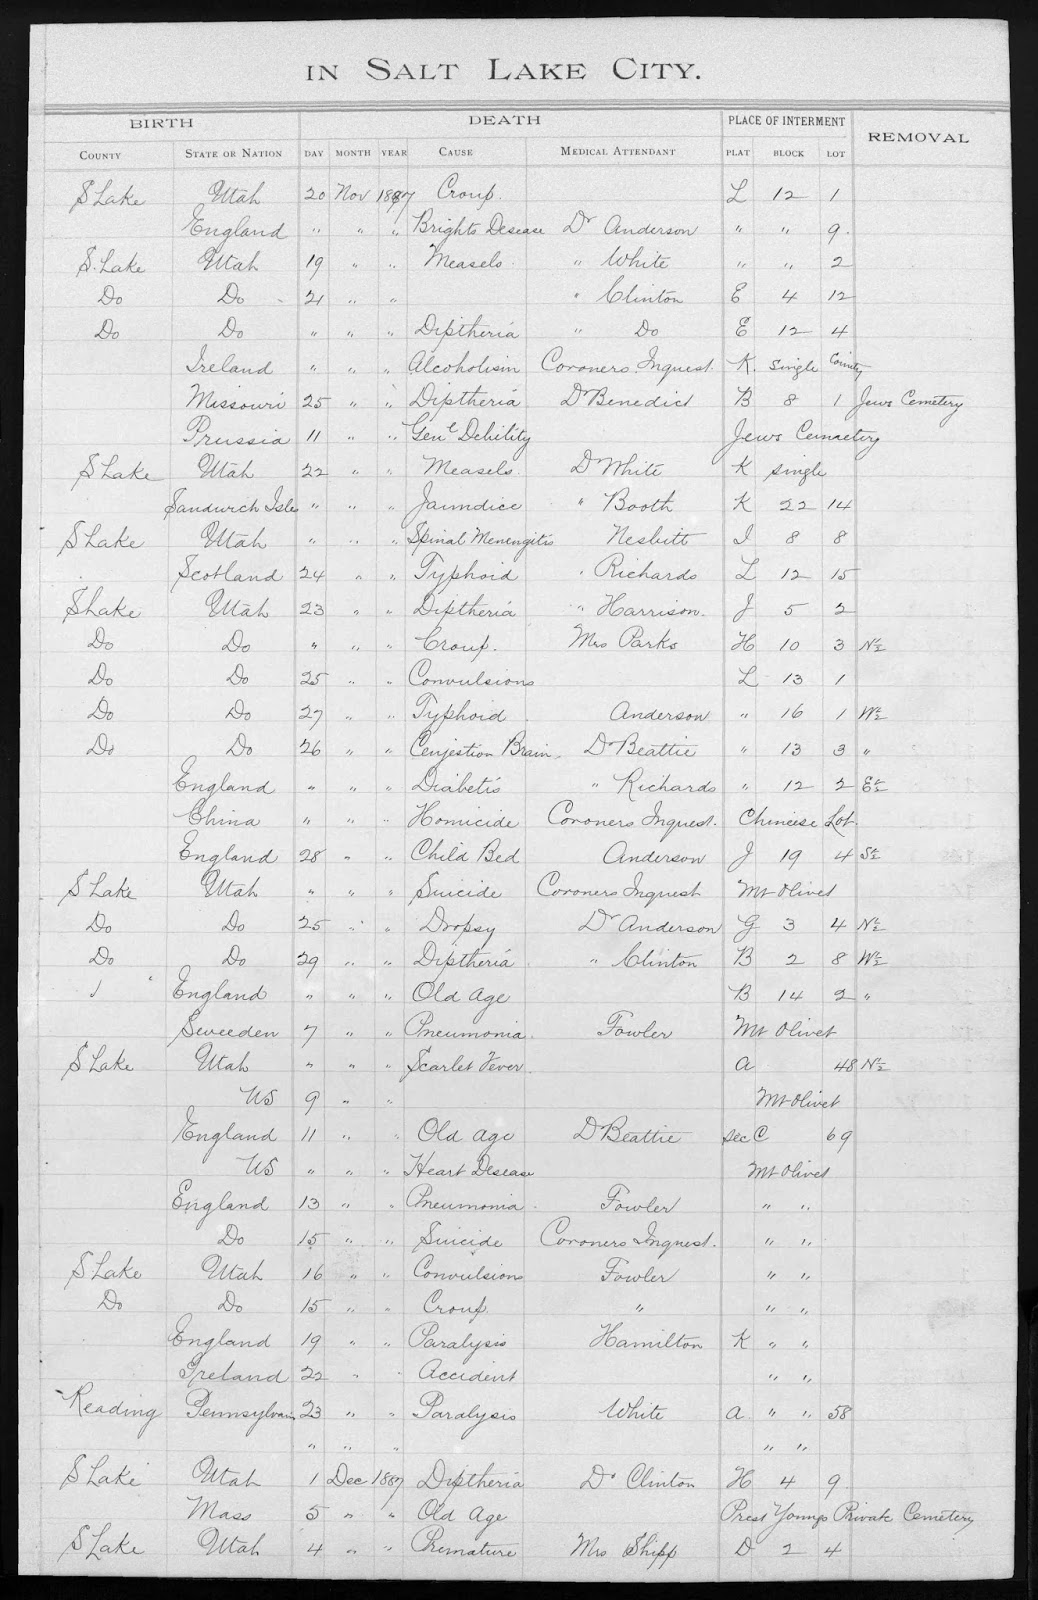 IN SALT LAKE CITY.
BIRTH DEATH PLACE OF INTERMENT REMOVAL
COUNTY STATE OR NATION DAY MONTH YEAR CAUSE MEDICAL ATTENDANT PLAT BLOCK LOT
S Lake Utah 20 Nov 1887 Croup. L 12 1
England " " " Brights Desease Dr Anderson " " 9.
S. Lake Utah 19 " " Measels. " White " " 2
Do Do 21 " " " Clinton E 4 12
Do Do " " " Diptheria " Do E 12 4
Ireland " " " Alcoholism Coroners Inquest. K. Single County
Missouri 25 " " Diptheria Dr Benedict B 8 1 Jews Cemetery
Prussia 11 " " Genl Debility Jews Cemaetery
S Lake Utah 22 " " Measels. Dr White K Single
Sandwich Isle " " " Jaundice " Booth K 22 14
S Lake Utah " " " Spinal Menengitis Nesbitt I 8 8
Scotland 24 " " Typhoid " Richards L 12 15
S Lake Utah 23 " " Diptheria " Harrison. J 5 2
Do Do " " " Croup. Mrs Parks H 10 3 N½
Do Do 25 " " Convulsions L 13 1
Do Do 27 " " Typhoid Anderson " 16 1 W½
Do Do 26 " " Cenjestion Brain Dr Beattie " 13 3 "
England " " " Diabetis " Richards " 12 2 E½
China " " " Homicide Coroners Inquest. Chineese Lot.
England 28 " " Child Bed Anderson J 19 4 S½
S Lake Utah " " " Suicide Coroners Inquest Mt Olivet
Do Do 25 " " Dropsy Dr Anderson G 3 4 N½
Do Do 29 " " Diptheria " Clinton B 2 8 W½
England " " " Old Age B 14 2 "
Sweeden 7 " " Pneumonia. Fowler Mt Olivet
S Lake Utah " " " Scarlet Fever. A 48 N½
US 9 " " Mt Olivet
England 11 " " Old Age Dr Beattie Sec C 69
US " " " Heart Desease Mt Olivet
England 13 " " Pneumonia. Fowler " "
Do 15 " " Suicide Coroners Inquest. " "
S Lake Utah 16 " " Convulsions Fowler " "
Do Do 15 " " Croup. " " "
England 19 " " Paralysis Hamilton K " "
Ireland 22 " " Accident " "
Reading Pennsylvania 23 " " Paralysis White A " " 58
" " " " "
S Lake Utah 1 Dec 1887 Diptheria Dr Clinton H 4 9
Mass 5 " " Old Age Prest Youngs Private Cemetery
S Lake Utah 4 " " Premature Mrs Shipp D 2 4